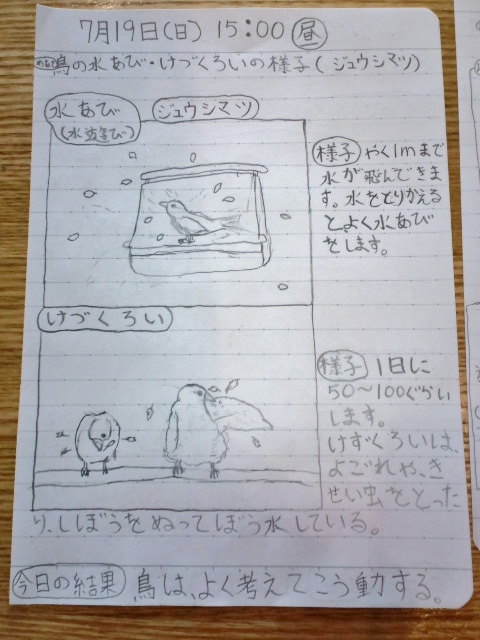 7月19日(日) 15:00 昼
鳥の水あび・けづくろいの様子(ジュウシマツ)
水あび
(水遊び)
ジュウシマツ
様子 やく1mまで
水が飛んできま
す。水をとりかえる
とよく水あび
をします。
けづくろい
様子 1日に
50〜100ぐらい
します。
けずくろいは、
よごれや、き
せい虫をとった
り、しぼうをぬってぼう水している。
今日の結果 鳥は、よく考えてこう動する。